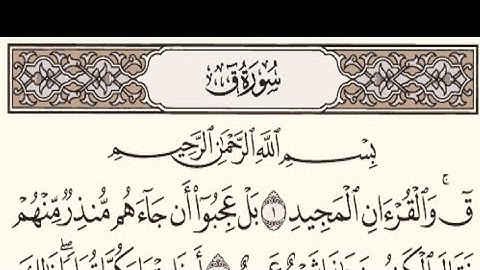 سُورَةُ قٓ
بِسْمِ ٱللَّهِ ٱلرَّحْمَٰنِ ٱلرَّحِيمِ
قٓ ۚ وَٱلْقُرْءَانِ ٱلْمَجِيدِ ١ بَلْ عَجِبُوٓا۟ أَن جَآءَهُم مُّنذِرٌ مِّنْهُمْ